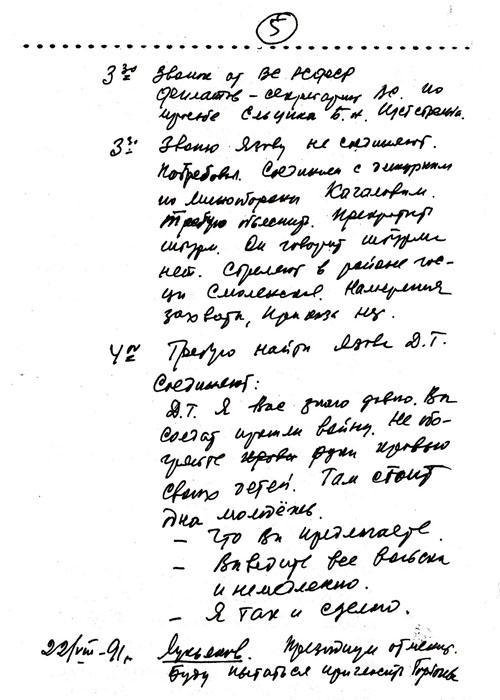 5
3 30 Звонок от ВС РСФСР
Филатов – секретариат ВС. по
просьбе Сл Б.
3 30 Звоню Язову не соединяют.
Потребовал. Соединили с дежурным
по министерству Качаловым.
Требую объяснит. Прекратит
штурм. Он говорит штурма
нет. Стреляют в районе гос-
цы Смоленской. Намерения
захвата, приказа нет.
4 00 Требую найти Язова Д.Т.
Соединяют:
Д.Т. Я Вас знаю давно. Вы
солдат прошли войну. Не обо-
грейте руки кровью
своих детей. Там стоит
одна молодёжь.
– Что Вы предлагаете.
– Выведите все войска
и немедленно.
– Я так и сделаю.
22/VIII–91 г. Лукьянов. Президиум отменит.
Буду пытаться пригласить Горбачёва